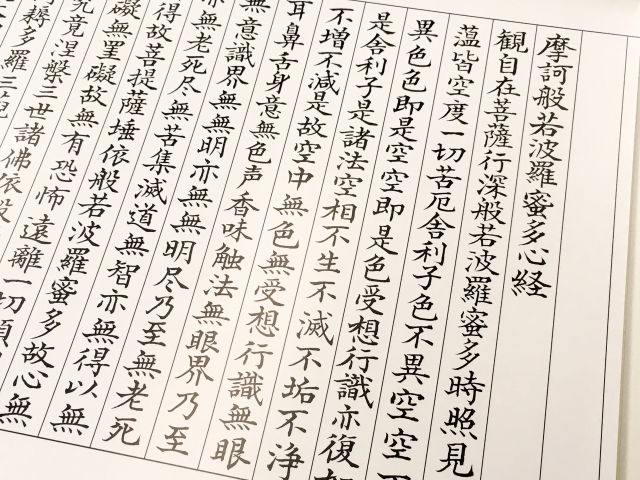 摩訶般若波羅蜜多心経
観自在菩薩行深般若波羅蜜多時照見
薀皆空度一切苦厄舎利子色不異空空不
異色色即是空空即是色受想行識亦復如
是舎利子是諸法空相不生不滅不垢不浄
不増不減是故空中無色無受想行識無眼
耳鼻舌身意無色声香味触法無眼界乃至
無意識界無無明亦無無明尽乃至無老死
亦無老死尽無苦集滅道無智亦無得以無
得故菩提薩埵依般若波羅蜜多故心無
礙無罣礙故無有恐怖遠離一切顛
究竟涅槃三世諸佛依般
耨多羅三藐